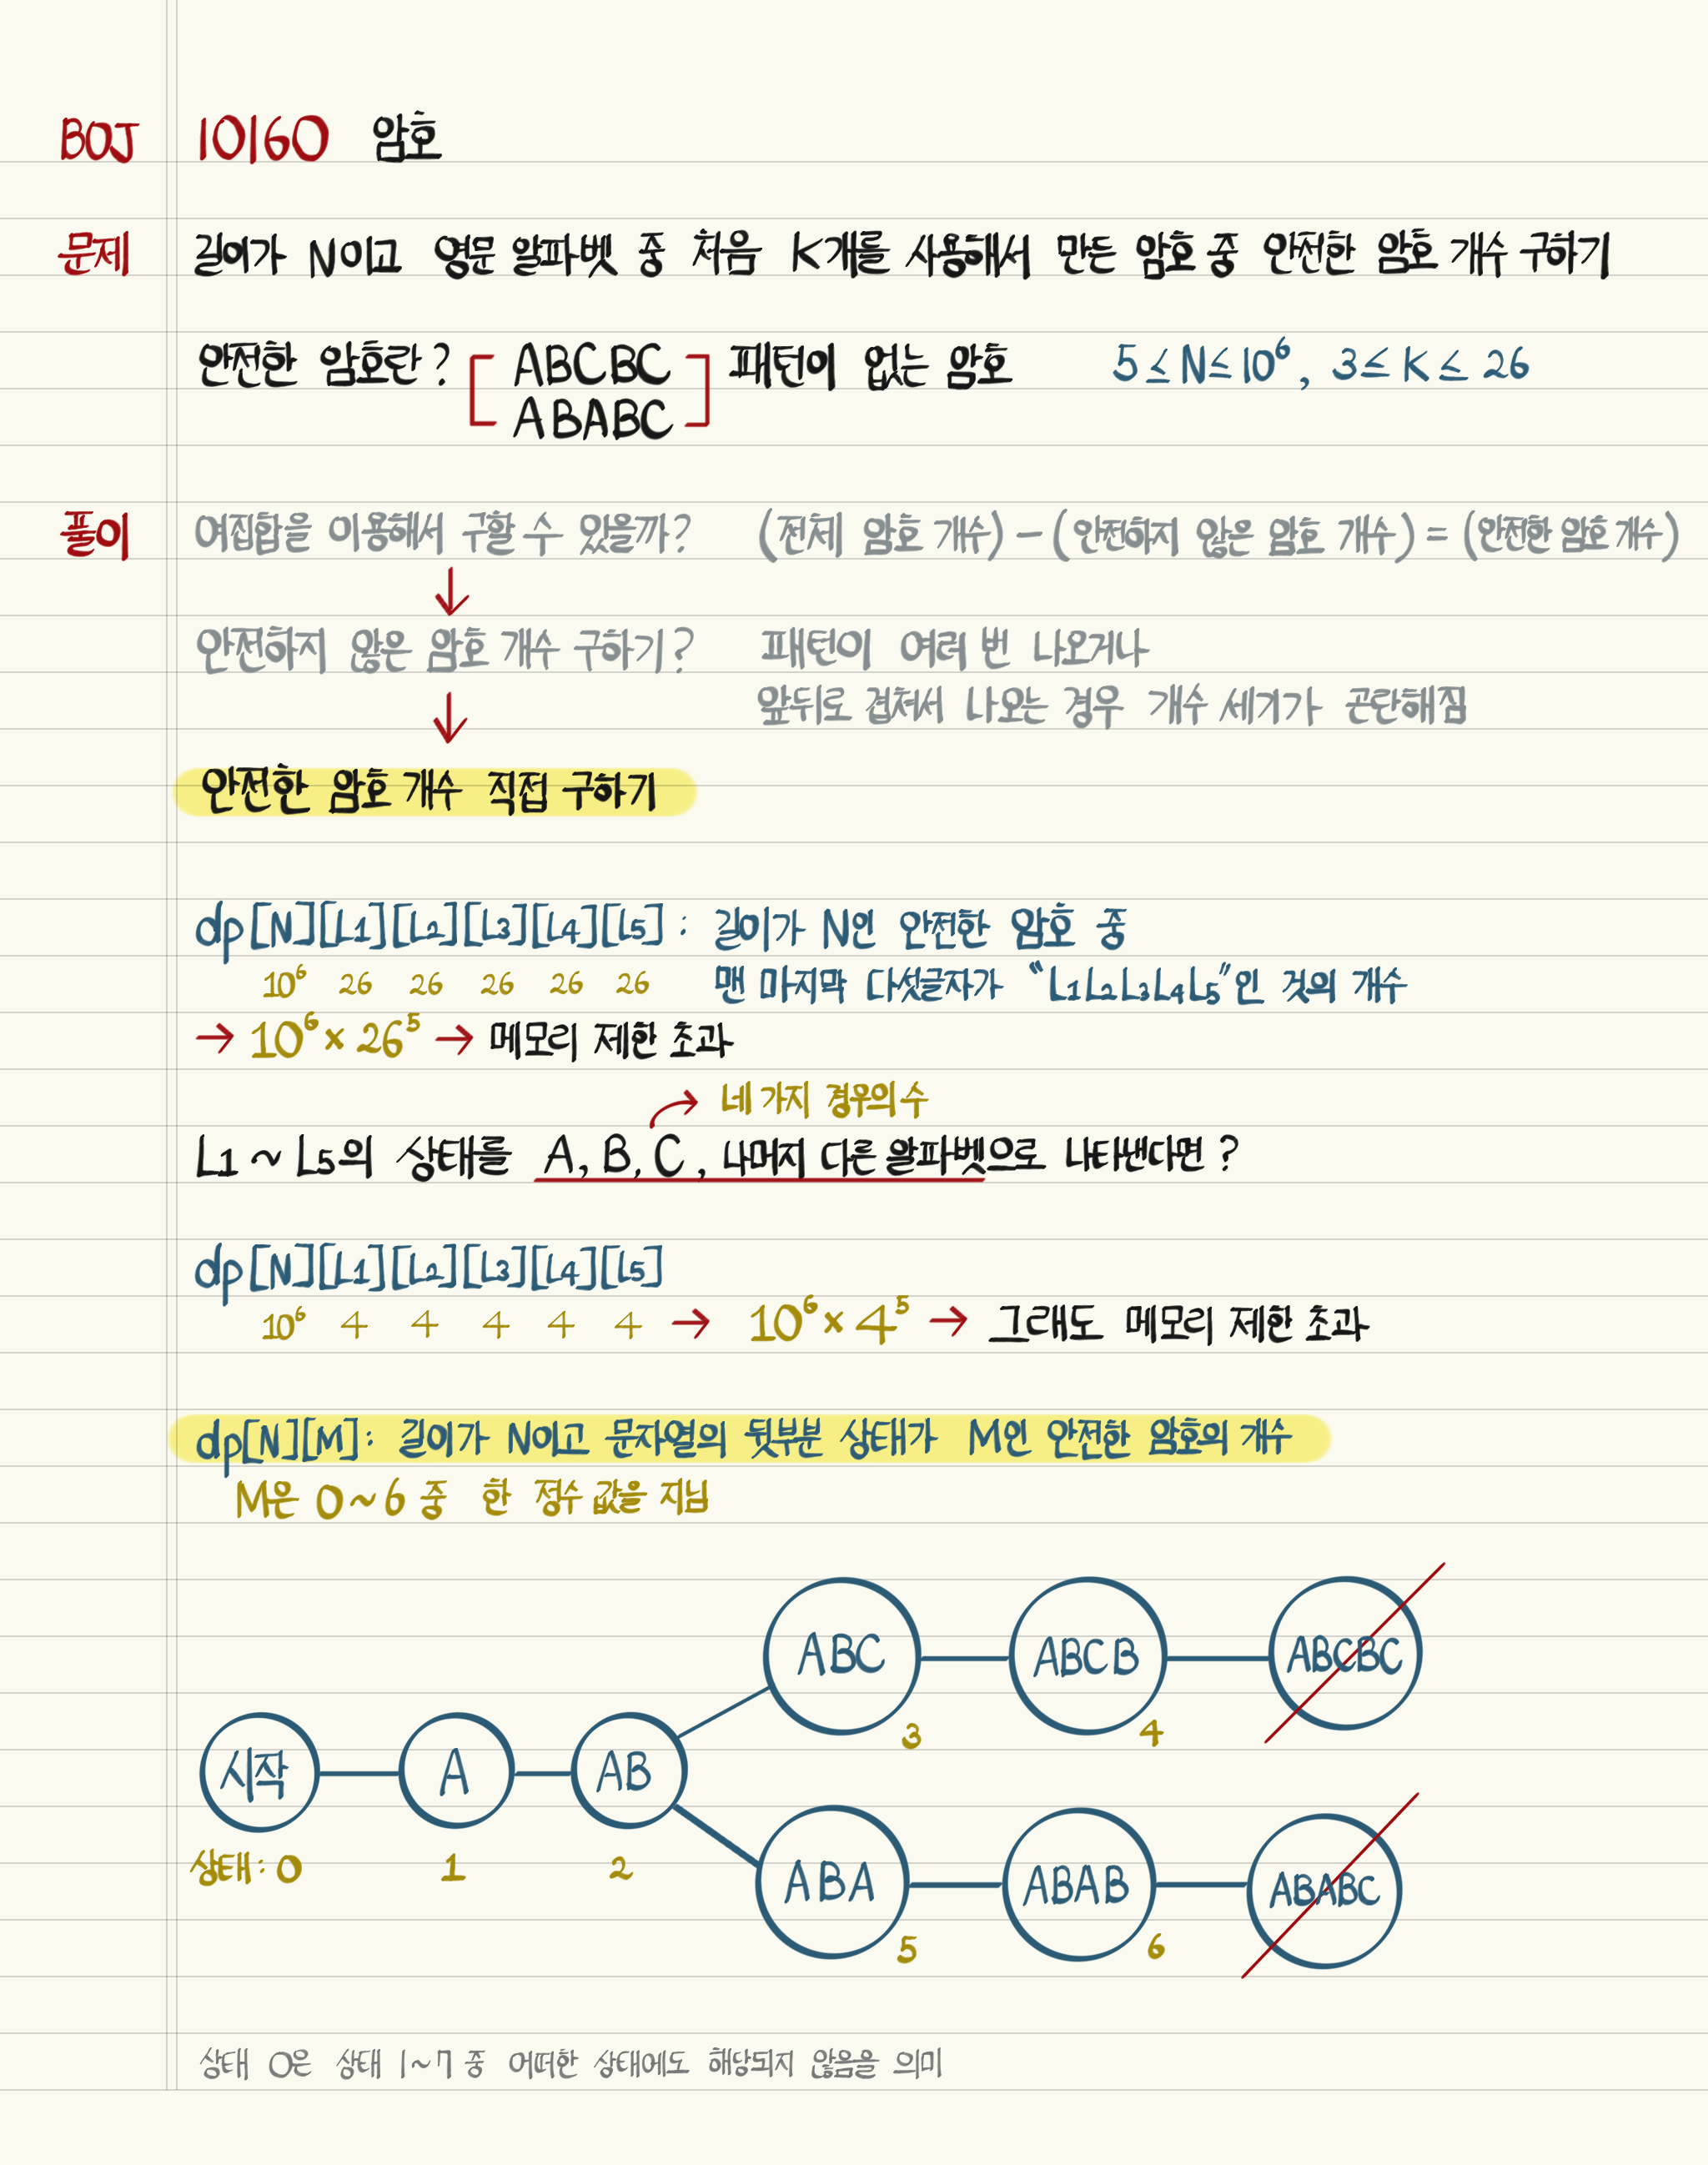 BOJ 10160 암호
문제 길이가 N이고 영문 알파벳 중 처음 K개를 사용해서 만든 암호 중 안전한 암호 개수 구하기
안전한 암호란? [ABCBC 패턴이 없는 암호 5 ≤ N ≤ 10⁶, 3 ≤ K ≤ 26
ABABC]
풀이 여집합을 이용해서 구할 수 있을까? (전체 암호 개수) - (안전하지 않은 암호 개수) = (안전한 암호 개수)
↓
안전하지 않은 암호 개수 구하기? 패턴이 여러 번 나오거나
앞뒤로 겹쳐서 나오는 경우 개수 세기가 곤란해짐
↓
안전한 암호 개수 직접 구하기
dp[N][L1][L2][L3][L4][L5] : 길이가 N인 안전한 암호 중
10⁶ 26 26 26 26 26 맨 마지막 다섯글자가 "L1L2L3L4L5"인 것의 개수
→ 10⁶ × 26⁵ → 메모리 제한 초과
네 가지 경우의 수
L1 ~ L5의 상태를 A, B, C, 나머지 다른 알파벳으로 나타낸다면?
dp[N][L1][L2][L3][L4][L5]
10⁶ 4 4 4 4 4 → 10⁶ × 4⁵ → 그래도 메모리 제한 초과
dp[N][M] : 길이가 N이고 문자열의 뒷부분 상태가 M인 안전한 암호의 개수
M은 0~6 중 한 정수 값을 지님
ABC ABCB ABCBC
3 4
시작 A AB
상태: 0 1 2
ABA ABAB ABABC
5 6
상태 0은 상태 1~7 중 어떠한 상태에도 해당되지 않음을 의미